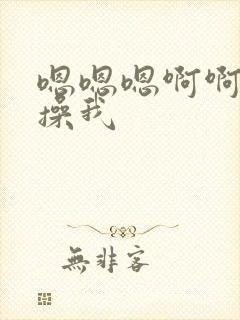 嗯嗯嗯啊啊
操我
無非客